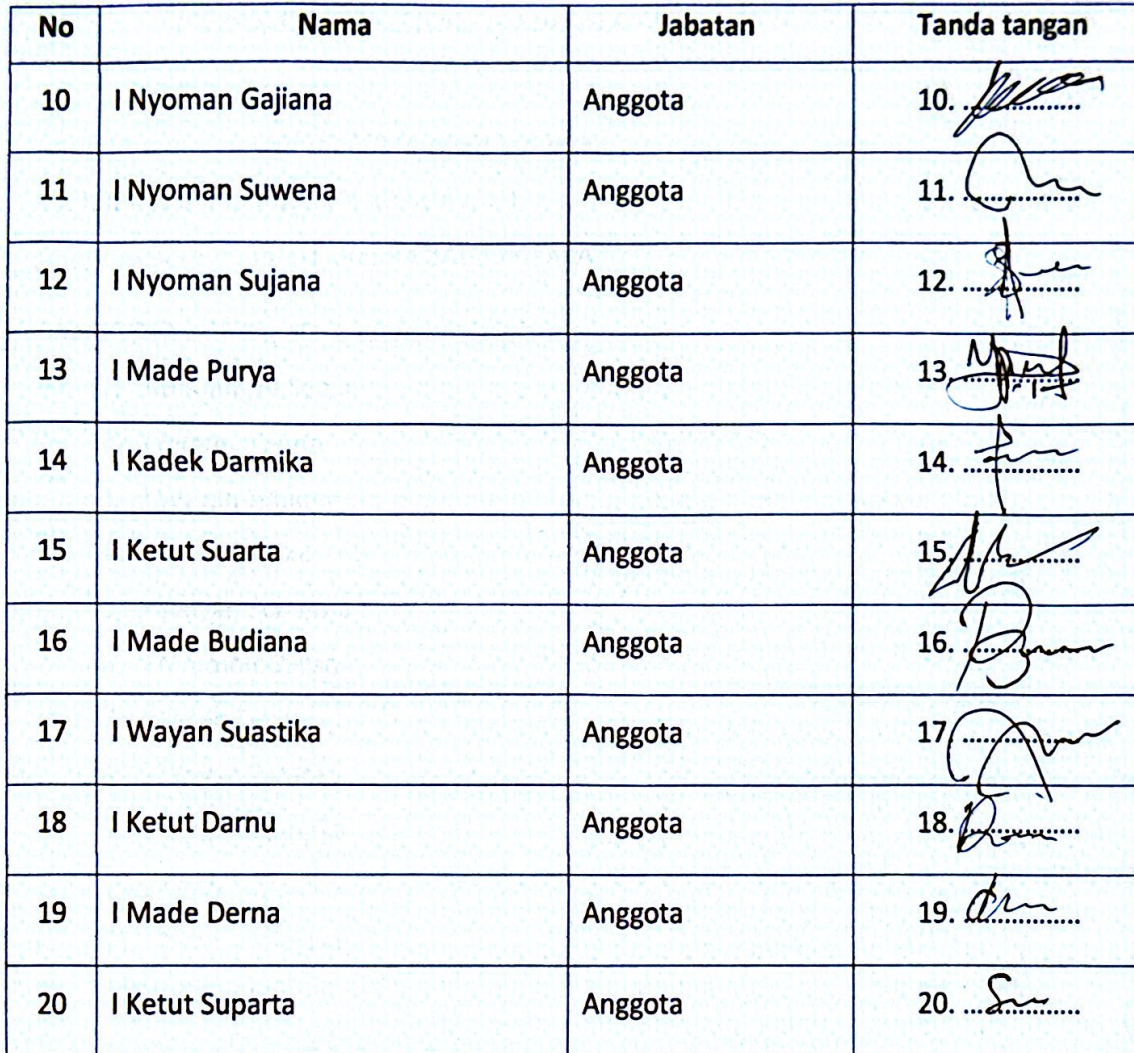 No Nama Jabatan Tanda tangan
10 I Nyoman Gajiana Anggota 10.
11 I Nyoman Suwena Anggota 11.
12 I Nyoman Sujana Anggota 12.
13 I Made Purya Anggota 13.
14 I Kadek Darmika Anggota 14.
15 I Ketut Suarta Anggota 15.
16 I Made Budiana Anggota 16.
17 I Wayan Suastika Anggota 17.
18 I Ketut Darnu Anggota 18.
19 I Made Derna Anggota 19.
20 I Ketut Suparta Anggota 20.